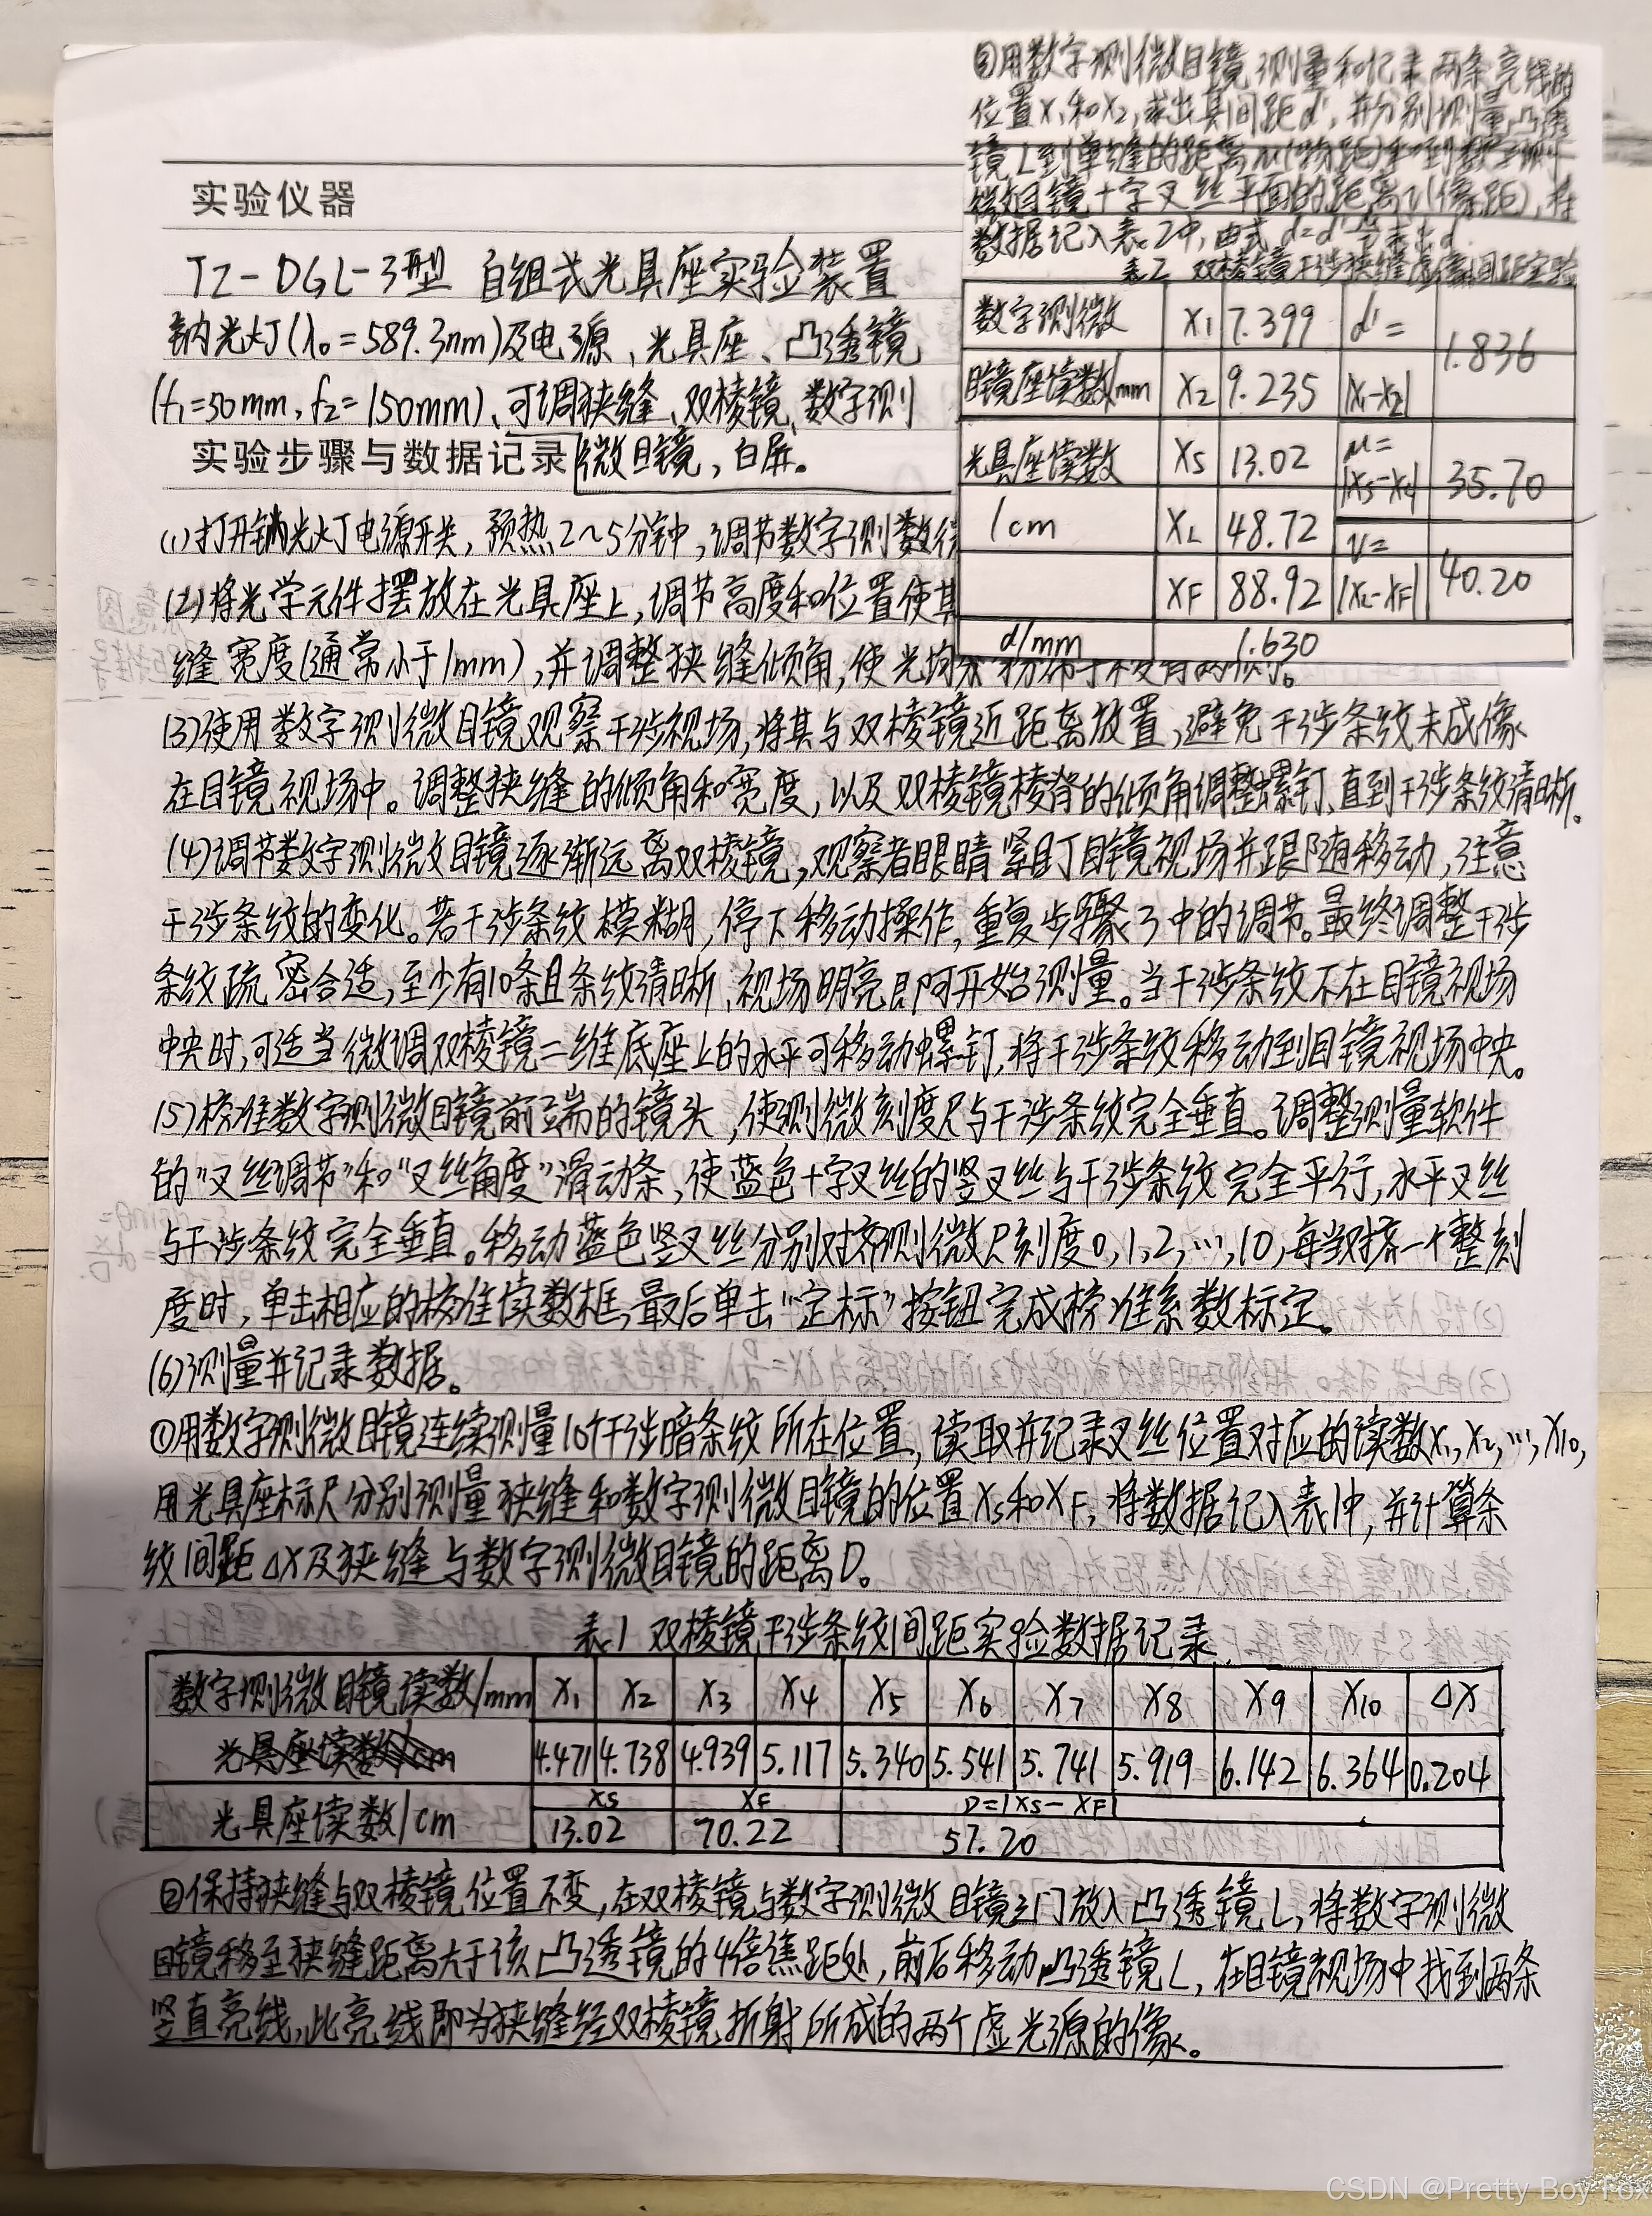 实验仪器
TZ-DGL-3型 自组式光具座实验装置
钠光灯(λ₀=589.3nm)及电源、光具座、凸透镜
(f₁=50mm,f₂=150mm)、可调狭缝、双棱镜、数字测
实验步骤与数据记录 微目镜,白屏。
(1)打开钠光灯电源开关,预热2~5分钟,调节数字测数
(2)将光学元件摆放在光具座上,调节高度和位置使其
缝宽度(通常小于1mm),并调整狭缝倾角,使光均
(3)使用数字测微目镜观察干涉视场,将其与双棱镜近距离放置,避免干涉条纹未成像
在目镜视场中。调整狭缝的倾角和宽度,以及双棱镜棱脊的倾角调整螺钉,直到干涉条纹清晰。
(4)调节数字测微目镜逐渐远离双棱镜,观察者眼睛紧盯目镜视场并跟随移动,注意
干涉条纹的变化。若干涉条纹模糊,停下移动操作,重复步骤3中的调节。最终调整干涉
条纹疏密合适,至少有10条且条纹清晰、视场明亮即可开始测量。当干涉条纹不在目镜视场
中央时,可适当微调双棱镜二维底座上的水平可移动螺钉,将干涉条纹移动到目镜视场中央。
(5)校准数字测微目镜前端的镜头,使测微刻度尺与干涉条纹完全垂直。调整测量软件
的"叉丝调节"和"叉丝角度"滑动条,使蓝色十字叉丝的竖叉丝与干涉条纹完全平行,水平叉丝
与干涉条纹完全垂直。移动蓝色竖叉丝分别对齐测微尺刻度0,1,2,…,10,每当对齐一个整刻
度时,单击相应的校准读数框,最后单击"定标"按钮完成校准系数标定。
(6)测量并记录数据。
①用数字测微目镜连续测量10个干涉暗条纹所在位置,读取并记录叉丝位置对应的读数X₁,X₂,…,X₁₀,
用光具座标尺分别测量狭缝和数字测微目镜的位置Xs和XF,将数据记入表1中,并计算条
纹间距ΔX及狭缝与数字测微目镜的距离D。
表1 双棱镜干涉条纹间距实验数据记录
数字测微目镜读数/mm X₁ X₂ X₃ X₄ X₅ X₆ X₇ X₈ X₉ X₁₀ ΔX
光具座读数/cm 4.471 4.738 4.939 5.117 5.340 5.541 5.741 5.919 6.142 6.364 0.204
光具座读数/cm Xs XF D=|Xs-XF|
13.02 70.22 57.20
②保持狭缝与双棱镜位置不变,在双棱镜与数字测微目镜之门放入凸透镜L,将数字测微
目镜移至狭缝距离大于该凸透镜的4倍焦距处,前后移动凸透镜L,在目镜视场中找到两条
竖直亮线,此亮线即为狭缝经双棱镜折射所成的两个虚光源的像。
③用数字测微目镜测量和记录两条亮线的
位置X₁和X₂,求出其间距d',并分别测量凸透
镜L到单缝的距离u(物距)和到数字测
微目镜十字叉丝平面的距离v(像距),将
数据记入表2中,由式d=d'u/v求出d
表2 双棱镜干涉狭缝虚像间距实验
数字测微 X₁ 7.399 d'= 1.836
目镜座读数/mm X₂ 9.235 |X₁-X₂|
光具座读数 Xs 13.02 u=|Xs-XL| 35.70
/cm XL 48.72 v=
XF 88.92 |XL-XF| 40.20
d/mm 1.630
CSDN @Pretty Boy Fox